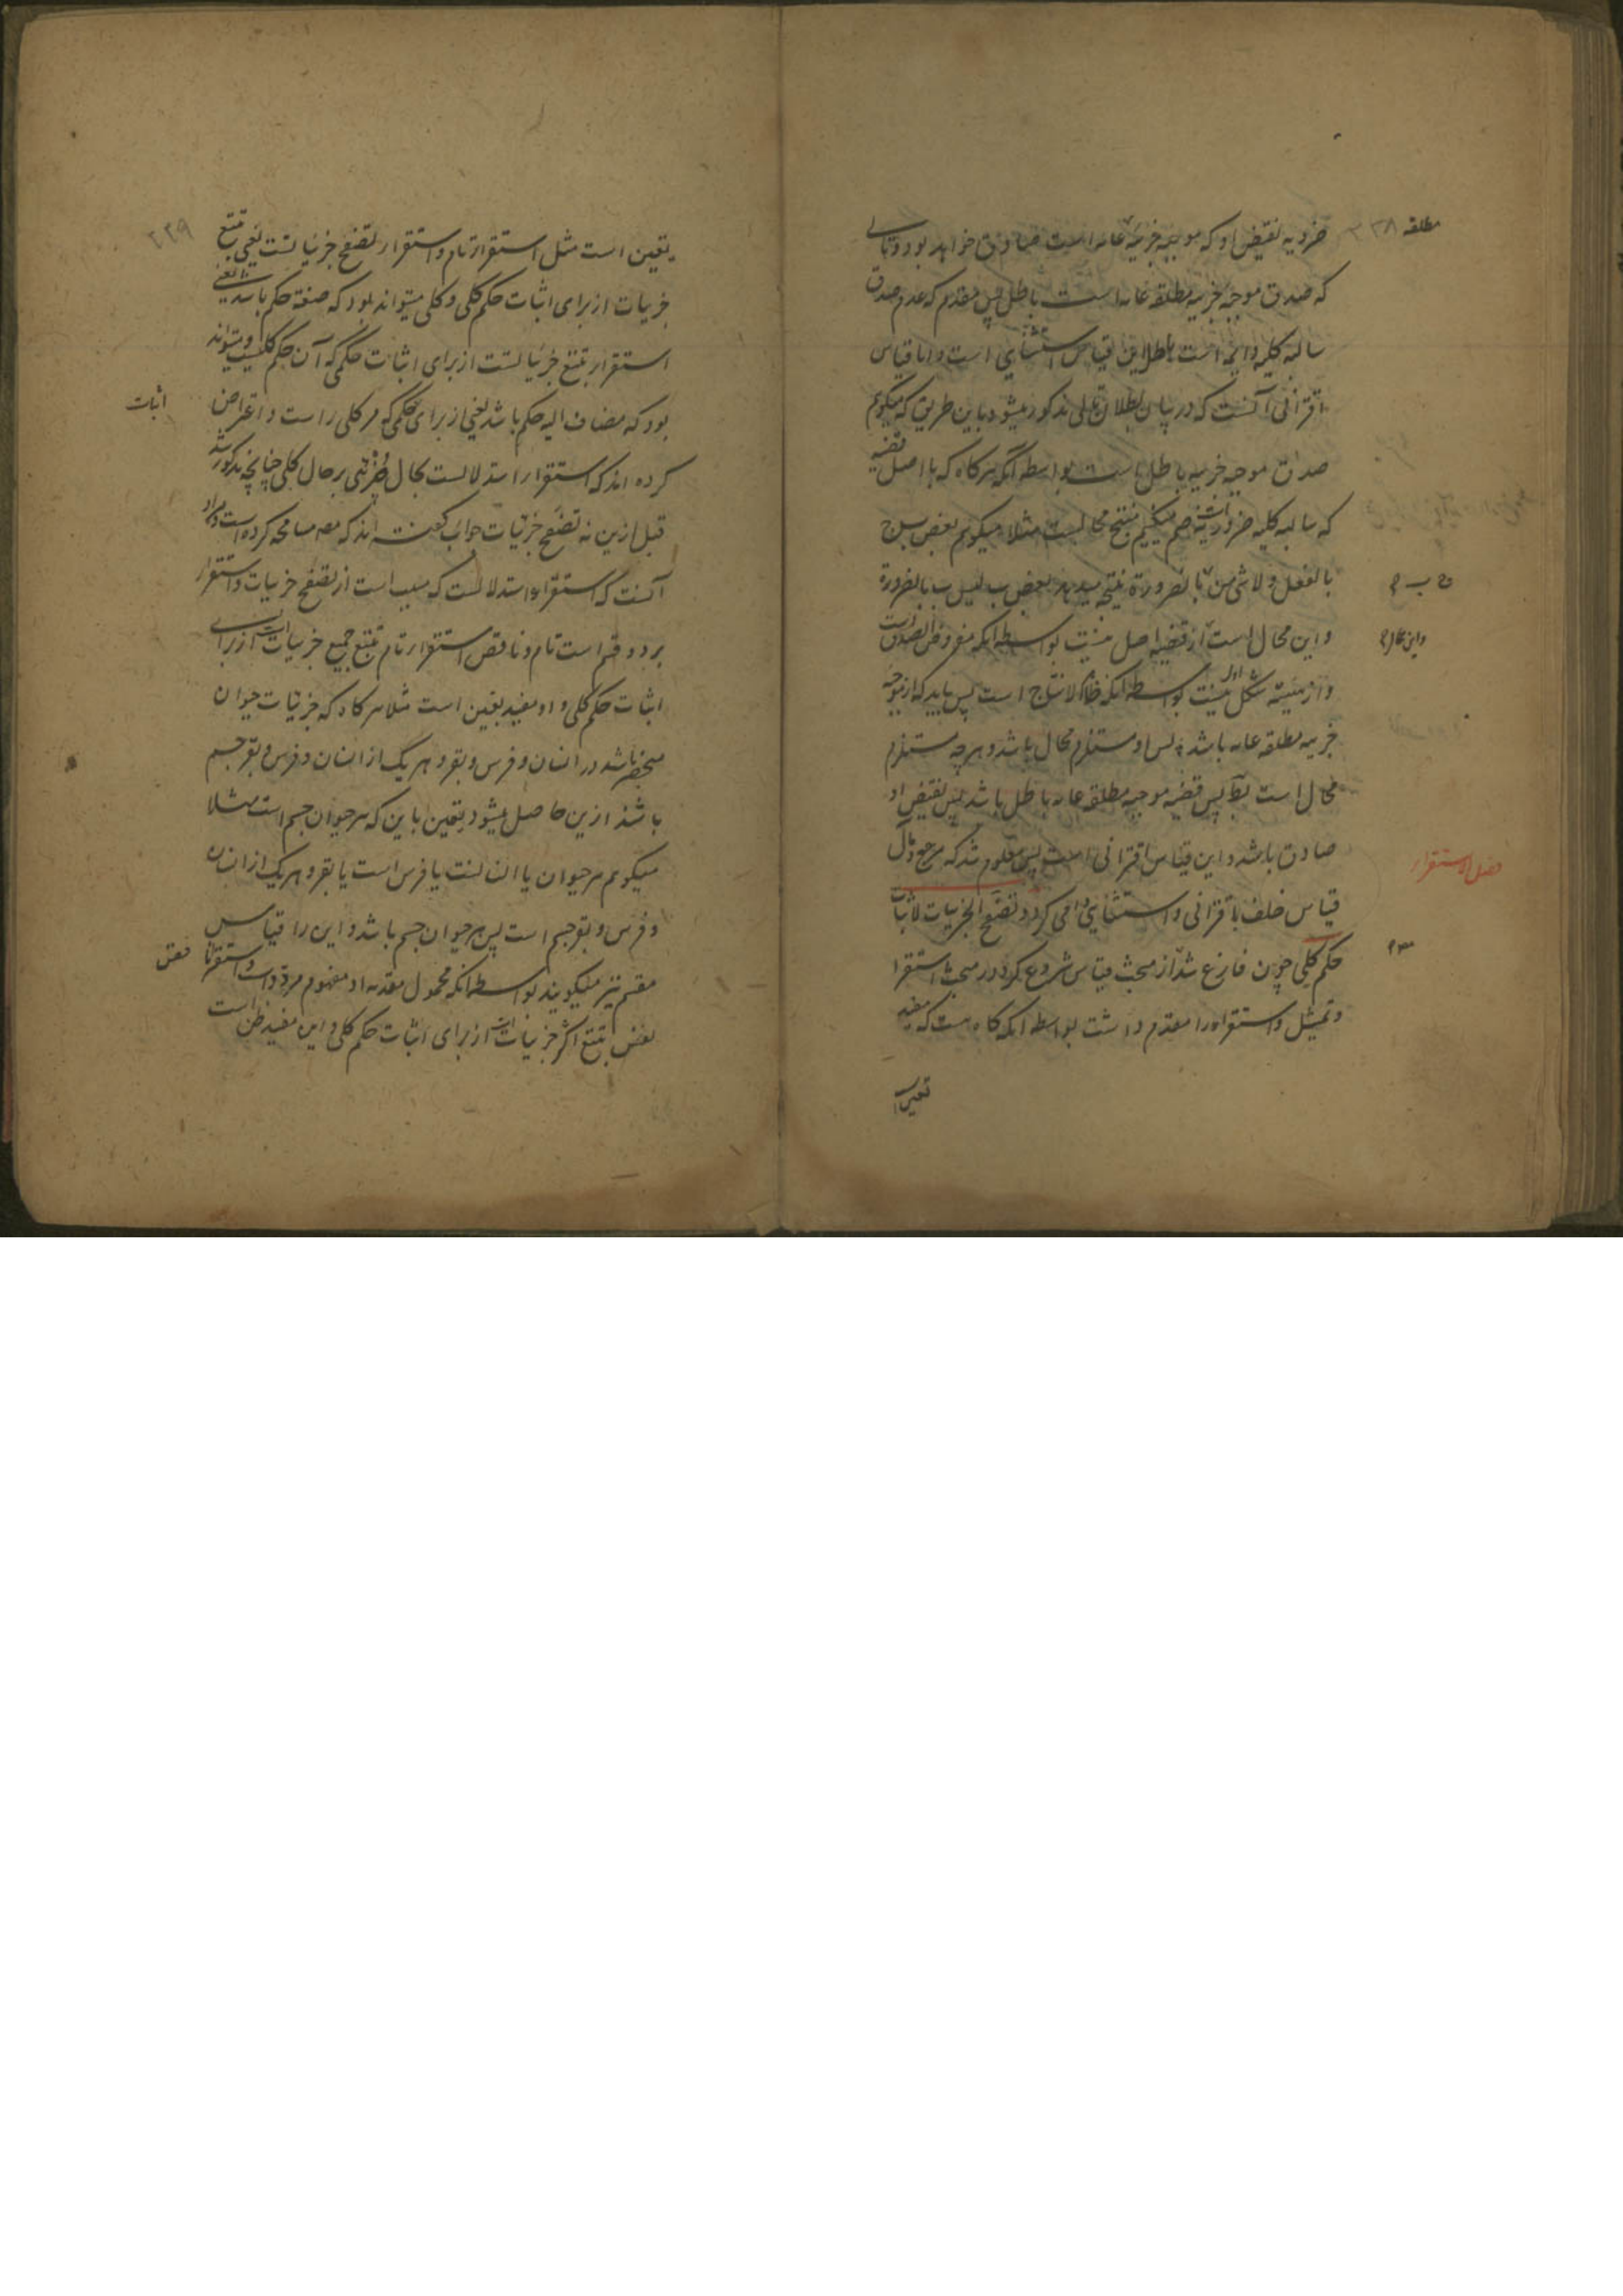 ضرور به نقیض او که موجبه جزییه عامه است صادق خواهد بود و تالی
مطلقه ۲۳۸
که صدق موجبه جزییه مطلقه عامه است باطل پس مقدم که عدم صدق
سالبه کلیه دایمه است باطل این قیاس استثنایی است و اما قیاس
اقترانی آنست که در بیان بطلان تالی مذکور میشود باین طریق که میگویم
صدق موجبه جزییه باطل است بواسطه آنکه هرکاه که با اصل قضیه
که سالبه کلیه ضروریه است ضم میکنیم منتج محالست مثلا میگویم بعض ب ج
بالفعل و لا شی من بالضرورة نتیجه میدهد بعض ب لیس ب بالضرورة
ج ب
و این محال است از قضیه اصل نیست بواسطه آنکه مفروض الصدق است
و این محال
و از هیئته شکل اول نیست بواسطه آنکه ظاهر الانتاج است پس باید که از موجبه
جزییه مطلقه عامه باشد پس او مستلزم محال باشد و هرچه مستلزم
محال است پس قضیه موجبه مطلقه عامه باطل باشد پس نقیض او
صادق باشد و این قیاس اقترانی است پس معلوم شد که مرجع و مآل
فصل الاستقراء
قیاس خلف با قترانی و استثنایی می کردد تصفح الجزییات لاثبات
حکم کلی چون فارغ شد از مبحث قیاس شروع کرد در مبحث استقرا
و تمثیل و استقراء را مقدم داشت بواسطه آنکه کاه هست که مفید
یقین است
۲۳۹
یقین است مثل استقرار تام و استقرار تصفح جزییاتست یعنی تتبع
جزییات از برای اثبات حکم کلی و کلی میتواند بود که صفة حکم باشد یعنی
استقرار تتبع جزییاتست از برای اثبات حکمی که آن حکم کلیست و میتواند
بود که مضاف الیه حکم باشد یعنی از برای حکمی که مر کلی راست و اعتراض
اثبات
کرده اند که استقرار استدلالست بحال جزئی بر حال کلی چنانچه مذکور شد
قبل ازین نه تصفح جزئیات جواب کفته اند که مص مسامحه کرده است و مراد
آنست که استقراء استدلالست که مسبب است از تصفح جزییات و استقرار
بر دو قسم است تام و ناقص استقرار تام تتبع جمیع جزییات است از برای
اثبات حکم کلی و او مفید یقین است مثلا هرکاه که جزئیات حیوان
منحصر باشد در انسان و فرس و بقر و هر یک از انسان و فرس و بقر جسم
باشند ازین حاصل میشود یقین باین که هر حیوان جسم است مثلا
میگویم هر حیوان یا انسانست یا فرس است یا بقر و هر یک از انسان
و فرس و بقر جسم است پس هر حیوان جسم باشد و این را قیاس
مقسم نیز میگویند بواسطه آنکه محمول مقدمه او مفهوم مردد است و استقرا نا
قص
ناقص تتبع اکثر جزییات است از برای اثبات حکم کلی و این مفید ظن است